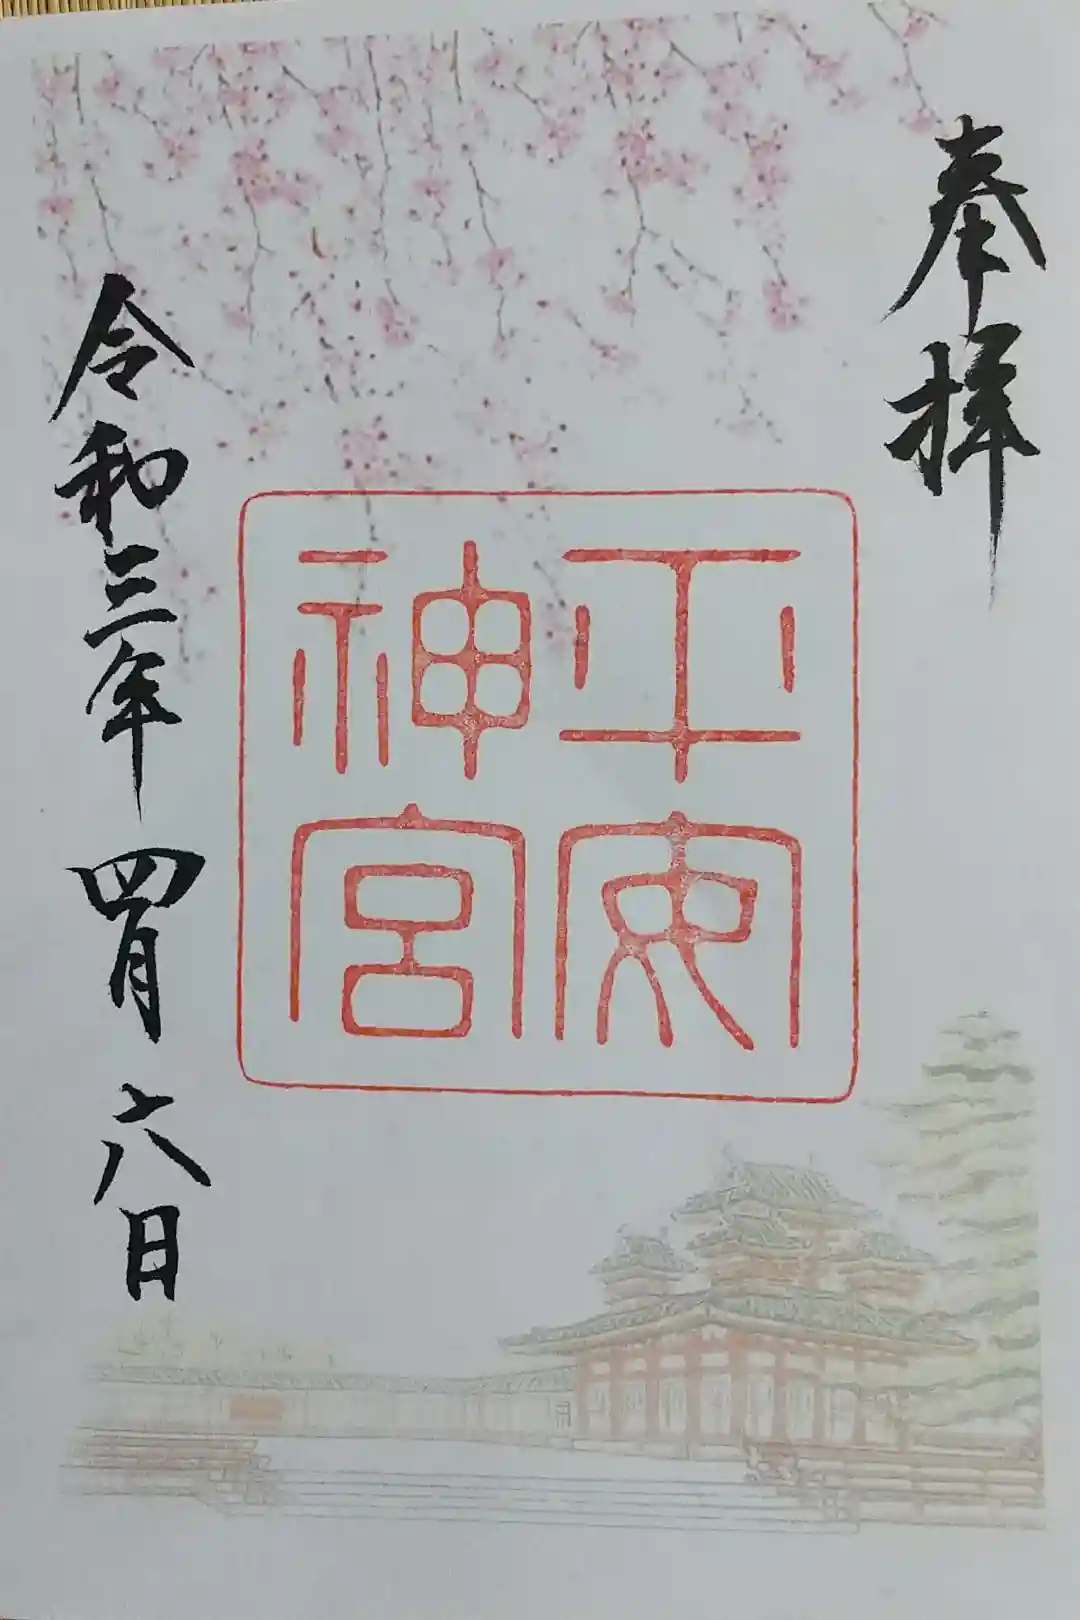 奉拝
平安
神宮
令和三年四月六日